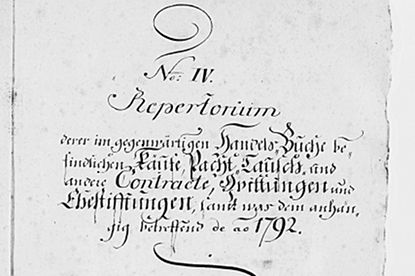 No: IV.
Repertorium
derer im gegenwärtigen Handels-Buche be-
findlichen Kaufe, Pacht, Tausch, und
andere Contracte, Qvittungen und
Ehestifftungen, samt was dem anhän-
gig betreffend de ao 1792.